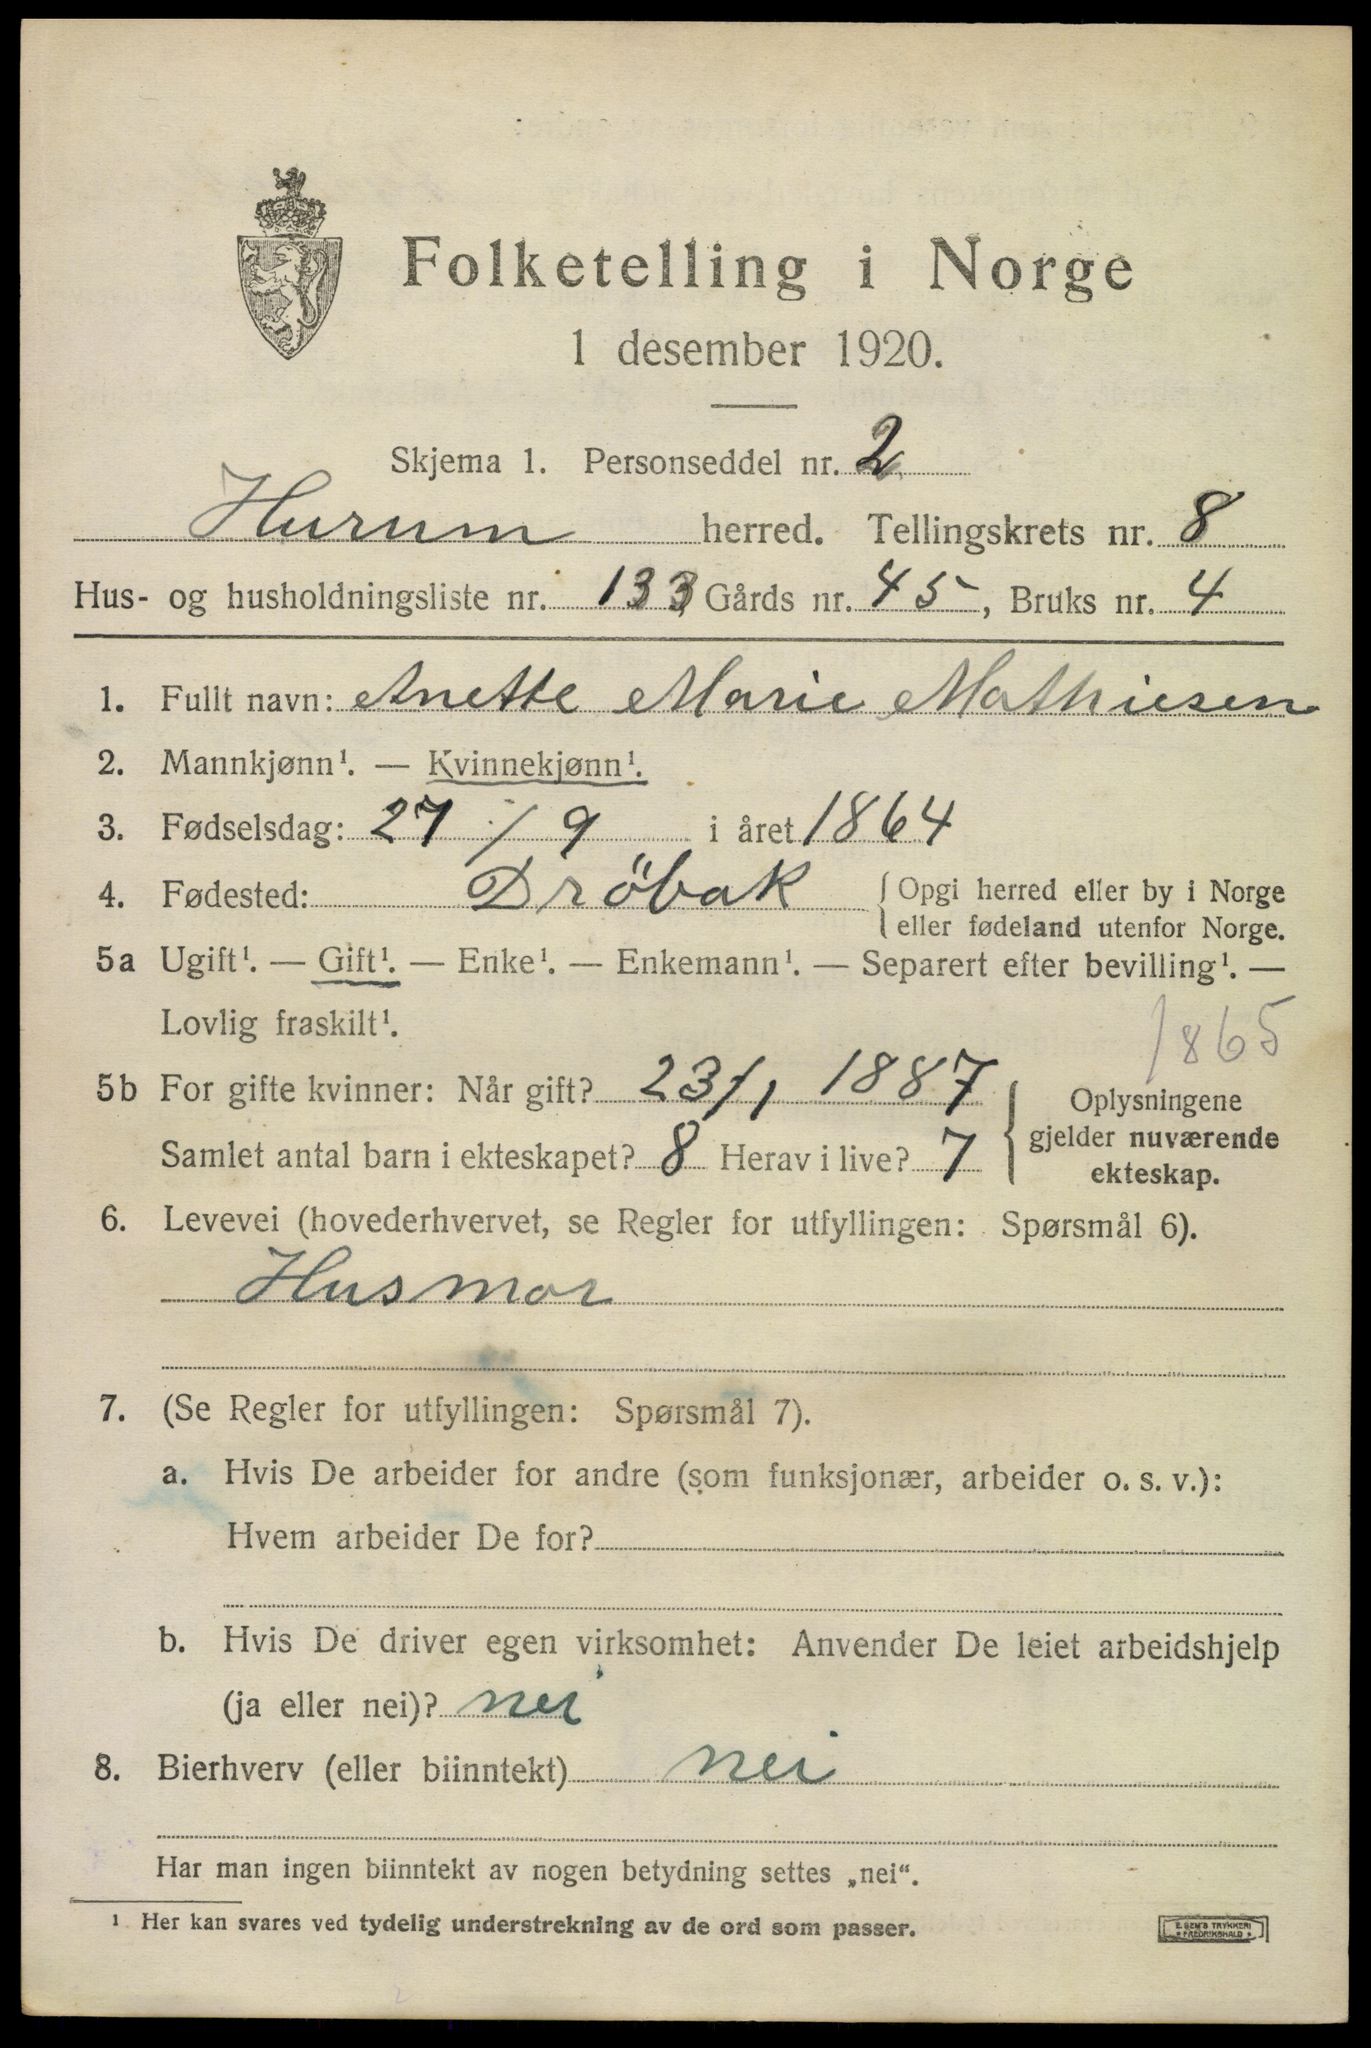 Folketelling i Norge
1 desember 1920.
Skjema 1. Personseddel nr. 2
Hurum herred. Tellingskrets nr. 8
Hus- og husholdningsliste nr. 133, Gårds nr. 45, Bruks nr. 4
1. Fullt navn: Anette Marie Mathiesen
2. Mannkjønn¹. — Kvinnekjønn¹.
3. Fødselsdag: 27/9 i året 1864
4. Fødested: Dröbak { Opgi herred eller by i Norge
eller fødeland utenfor Norge.
5a Ugift¹. — Gift¹. — Enke¹. — Enkemann¹. — Separert efter bevilling¹. —
Lovlig fraskilt¹.
1865
5b For gifte kvinner: Når gift? 23/1 1887 { Oplysningene
gjelder nuværende
ekteskap.
Samlet antal barn i ekteskapet? 8 Herav i live? 7
6. Levevei (hovederhvervet, se Regler for utfyllingen: Spørsmål 6).
Husmor
7. (Se Regler for utfyllingen: Spørsmål 7).
a. Hvis De arbeider for andre (som funksjonær, arbeider o. s. v.):
Hvem arbeider De for?
b. Hvis De driver egen virksomhet: Anvender De leiet arbeidshjelp
(ja eller nei)? nei
8. Bierhverv (eller biinntekt) nei
Har man ingen biinntekt av nogen betydning settes „nei“.
¹ Her kan svares ved tydelig understrekning av de ord som passer.
E. SEM'S TRYKKERI
FREDRIKSHALD